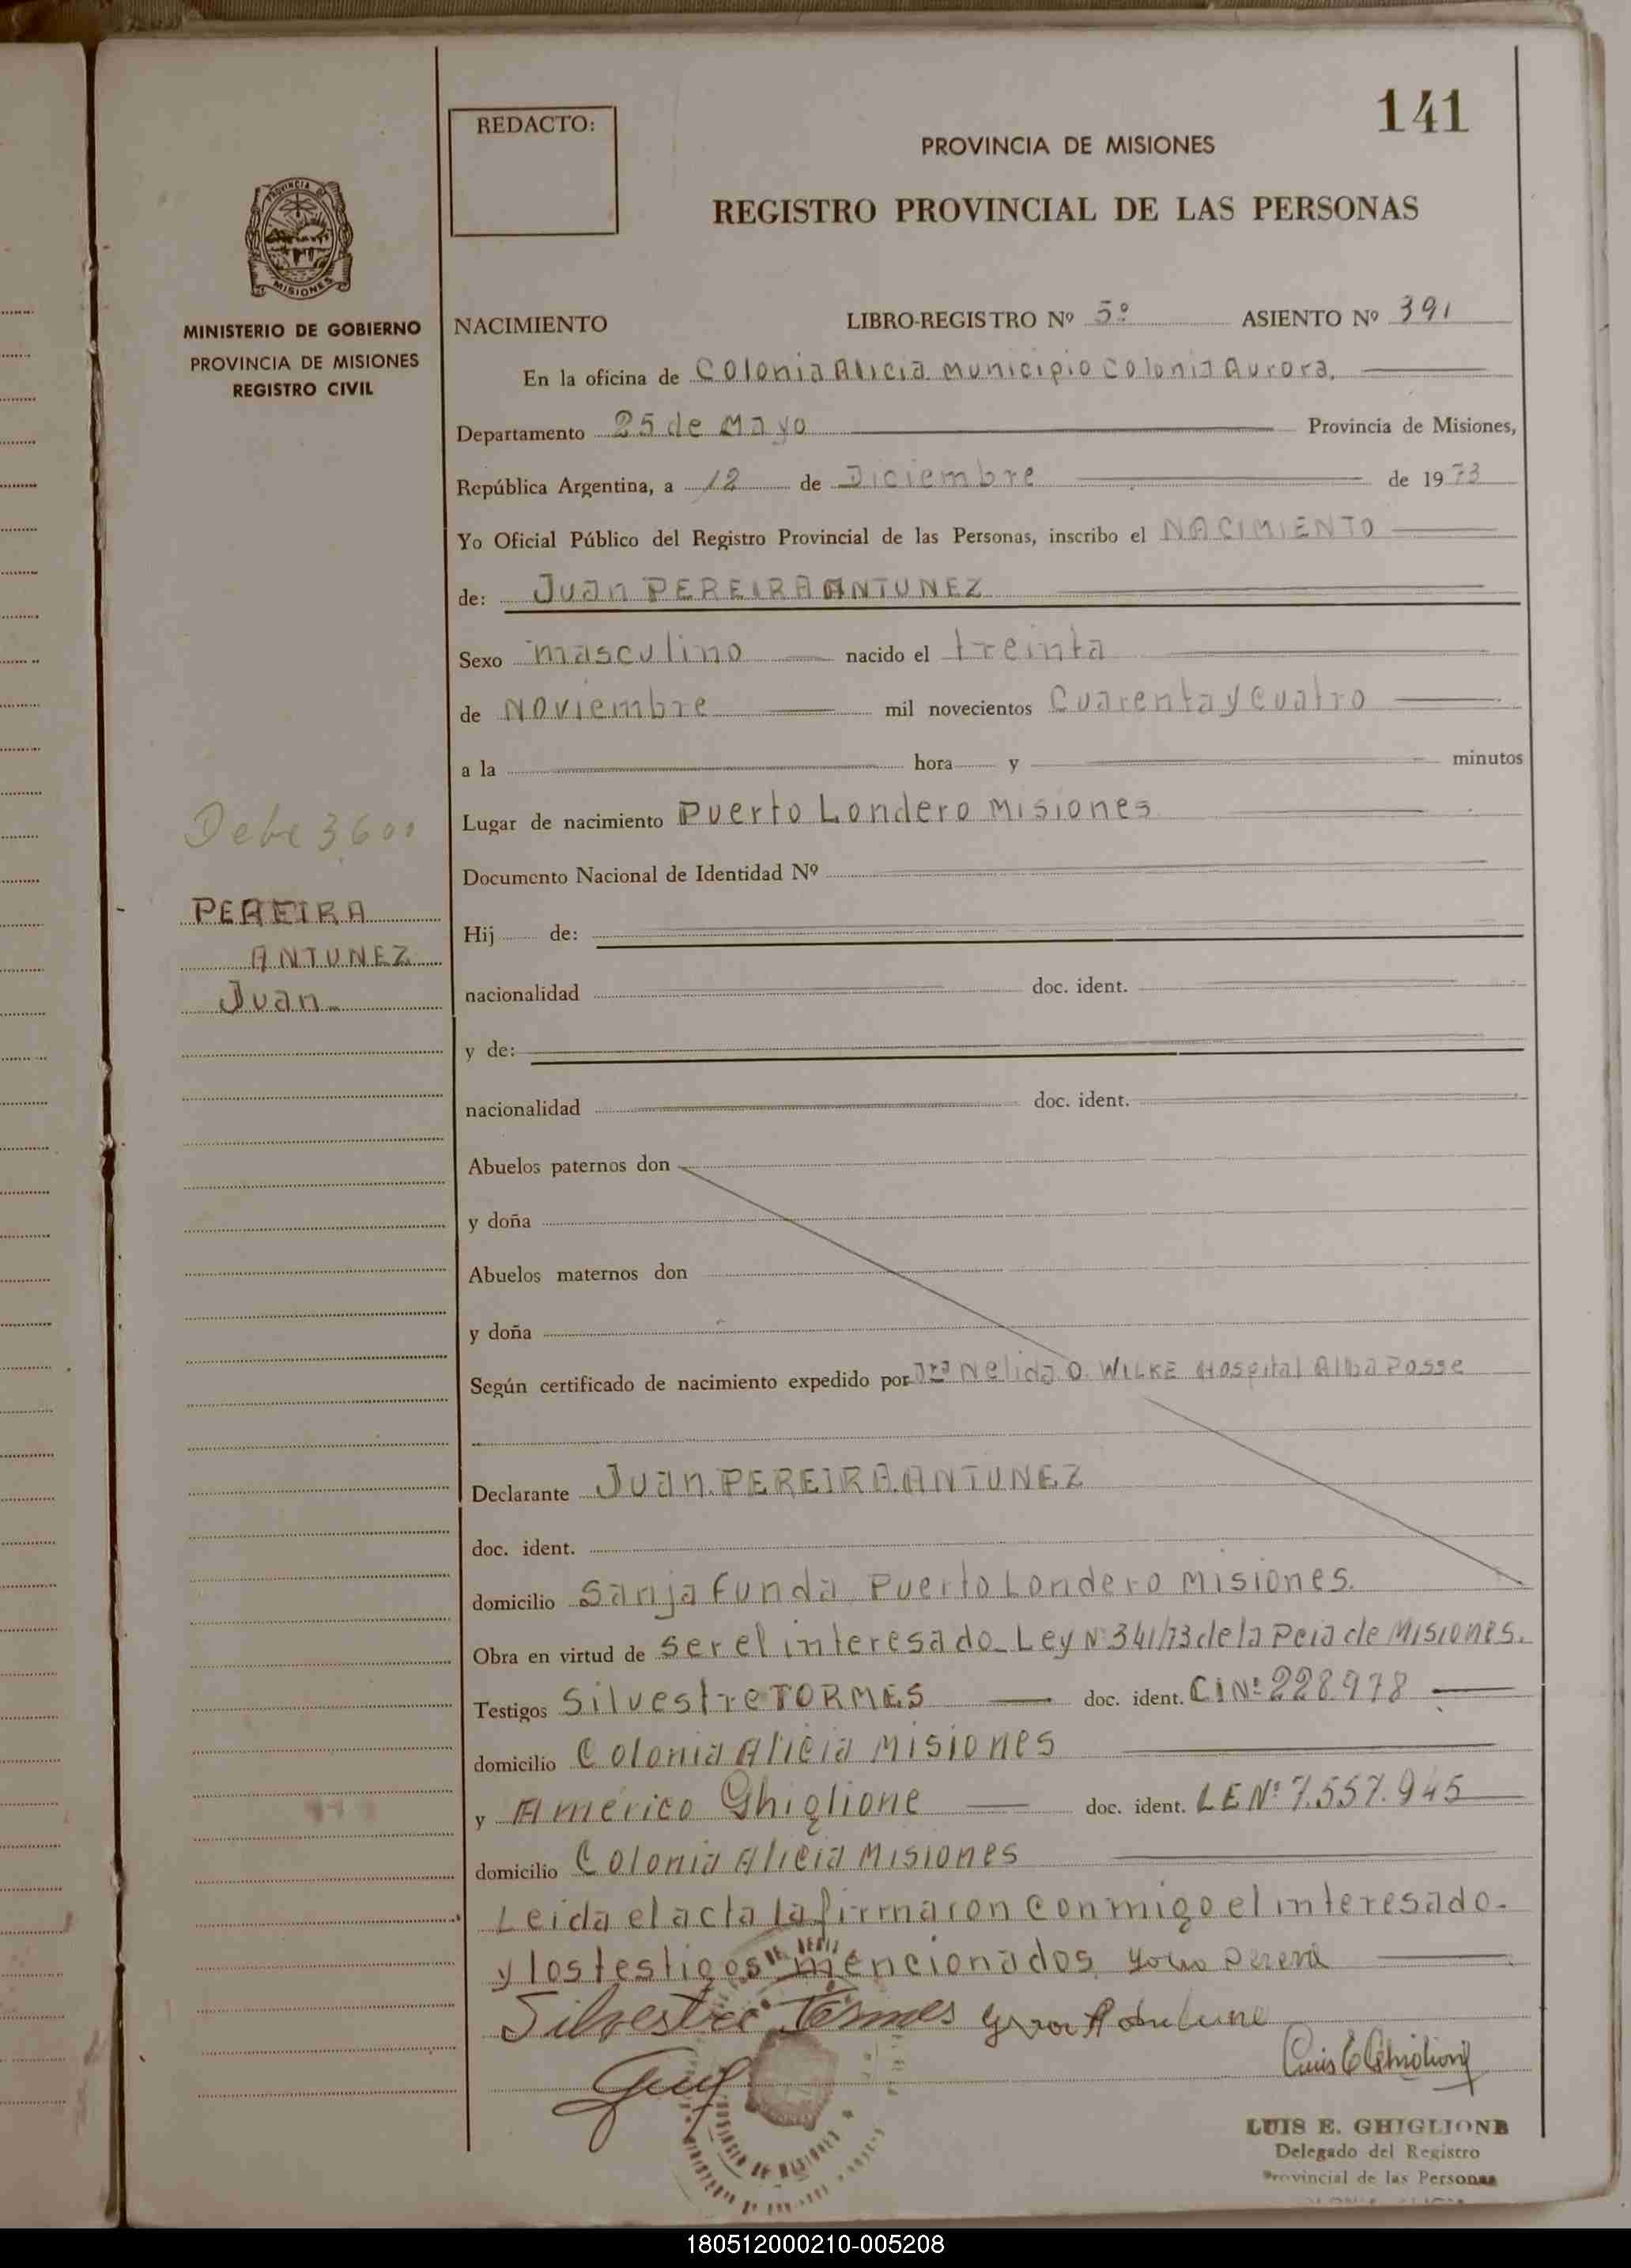 141
REDACTO:
PROVINCIA DE MISIONES
REGISTRO PROVINCIAL DE LAS PERSONAS
PROVINCIA DE
MISIONES
MINISTERIO DE GOBIERNO
PROVINCIA DE MISIONES
REGISTRO CIVIL
NACIMIENTO LIBRO-REGISTRO Nº 5º ASIENTO Nº 391
En la oficina de Colonia Alicia Municipio Colonia Aurora.
Departamento 25 de Mayo Provincia de Misiones,
República Argentina, a 12 de Diciembre de 1973
Yo Oficial Público del Registro Provincial de las Personas, inscribo el NACIMIENTO
de: Juan PEREIRA ANTUNEZ
Sexo masculino nacido el treinta
de Noviembre mil novecientos Cuarenta y Cuatro
a la hora y minutos
Lugar de nacimiento Puerto Londero Misiones
Documento Nacional de Identidad Nº
Debe 3600
PEREIRA
ANTUNEZ
Juan
Hij de:
nacionalidad doc. ident.
y de:
nacionalidad doc. ident.
Abuelos paternos don
y doña
Abuelos maternos don
y doña
Según certificado de nacimiento expedido por Dra Nelida O. WILKE Hospital Alba Posse
Declarante Juan PEREIRA ANTUNEZ
doc. ident.
domicilio Sanja Funda Puerto Londero Misiones.
Obra en virtud de ser el interesado Ley Nº 341/73 de la Pcia de Misiones.
Testigos Silvestre TORMES doc. ident. CI Nº 228.978
domicilio Colonia Alicia Misiones
y Américo Ghiglione doc. ident. LE Nº 7.557.945
domicilio Colonia Alicia Misiones
Leida el acta la firmaron conmigo el interesado
y los testigos mencionados
Silvestre Tormes
LUIS E. GHIGLIONE
Delegado del Registro
Provincial de las Personas
PROVINCIA DE MISIONES
180512000210-005208